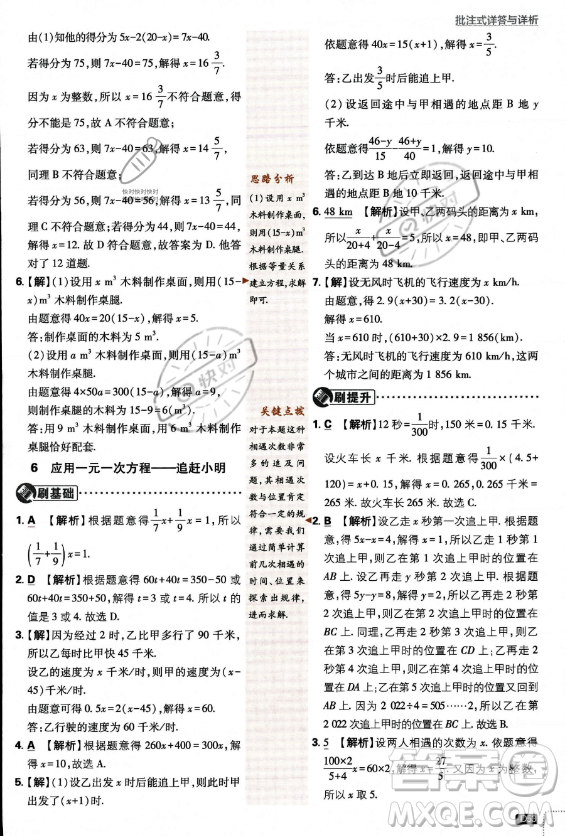 批注式详答与详析
由(1)知他的得分为 5x-2(20-x)= 7x-40.
若得分为 75,则 7x-40=75,解得 x=16 3/7.
因为 x 为整数,所以 x=16 3/7 不符合题意,
得分不能为 75,故 A 不符合题意;
若得分为 63,则 7x-40=63,解得 x=14 5/7,
同理 B 不符合题意;
若得分为 56,则 7x-40=56,解得 x=13 5/7,同
理 C 不符合题意;
若得分为 44,则 7x-40=44,解得 x=12,所以
得分可能为 44,D 符合题意,故答案为 D. 他答
对了 12 道题.
6.【解】(1)设用 x m³ 木料制作桌面,则用(15-
x) m³ 木料制作桌腿.
由题意得 40x=20(15-x),解得 x=5.
答:制作桌面的木料为 5 m³.
(2)设用 a m³ 木料制作桌面,则用(15-a) m³
木料制作桌腿.
由题意得 4×50a=300(15-a),解得 a=9,
则制作桌腿的木料为 15-9=6(m³).
答:用 9 m³ 木料制作桌面,用 6 m³ 木料制作
桌腿恰好配套.
6 应用一元一次方程——追赶小明
刷基础
1. A 【解析】根据题意得 1/7 x+1/9 x=1,所以
(1/7+1/9)x=1.
2. D 【解析】根据题意得 60t+40t=350-50 或
60t+40t=350+50,解得 t=3 或 t=4. 所以 t 的
值是 3 或 4. 故选 D.
3.【解】因为经过 2 小时,乙比甲多行了 90 千米,
所以乙每小时比甲快 45 千米.
设乙的速度为 x 千米/时,则甲的速度为(x-
45)千米/时.
由题意可得 0.5x=2(x-45),解得 x=60.
答:乙行驶的速度为 60 千米/时.
4.【解】根据题意得 260x+400=300x,解得
x=10,故选 A.
5.【解】(1)设乙出发 x 时后能追上甲.
思路分析
(1)设用 x m³
木料制作桌面,
则用(15-x) m³
木料制作桌腿.
根据等量关系
建立方程,求解
即可.
关键点拨
对于本题这种
相遇次数非常
多的追及问
题,其关键是
相遇情况应当
符合一定的规
律,需要我们
通过简单计算
前几次相遇的
时间、位置来
探索出规律,
进而求解.
依题意得 40x=15(x+1),解得 x=3/5.
答:乙出发 3/5 时后能追上甲.
(2)设返回途中与甲相遇的地点距 B 地 y
千米.
依题意得 (46-y)/15=(46+y)/40-1,解得 y=10.
答:乙到达 B 地后立即返回,返回途中与甲相
遇的地点距 B 地 10 千米.
6. 48 km 【解析】设甲、乙两码头的距离为 x km,
所以 x/(20+4)+x/(20-4)=5,所以 x=48,即甲、乙两码
头的距离为 48 km.
7.【解】设无风时飞机的飞行速度为 x km/h.
由题意,得 2.9(x+30)=3.2(x-30).
解得 x=610.
当 x=610 时,(610+30)×2.9=1 856(km).
答:无风时飞机的飞行速度为 610 km/h,这两
个城市之间的距离为 1 856 km.
刷提升
1. C 【解析】12 秒=1/300 时,150 米=0.15 千米.
设火车长 x 千米. 根据题意得 1/300×(4.5+
120)=x+0.15,解得 x=0.265,0.265 千米=265
米. 故火车长 265 米. 故选 C.
2. B 【解析】设乙走 x 秒第一次追上甲. 根据题
意得 5x-x=4,解得 x=1,所以乙走 1 秒第 1
次追上甲,则乙在第 1 次追上甲时的位置在
AB 上. 设乙再走 y 秒第二次追上甲. 根据题意
得 5y-y=8,解得 y=2,所以乙再走 2 秒第 2
次追上甲,则乙在第 2 次追上甲时的位置在
BC 上. 同理,乙再走 2 秒第 3 次追上甲时的位
置在 CD 上;乙再走 2 秒第 4 次追上甲时的位
置在 DA 上;乙在第 5 次追上甲时的位置又回到
AB 上. 因为 2 022÷4=505……2,所以乙在第
2 022 次追上甲时的位置在 BC 上. 所以它们第
2 022 次相遇在边 BC 上,故选 B.
3. 5 【解析】设两人相遇的次数为 x. 依题意得
(100×2)/(5+4) x=60×2,解得 x=27/5. 又因为 x 为整数,
所以 x 取 5.
快对
MXQE.COM